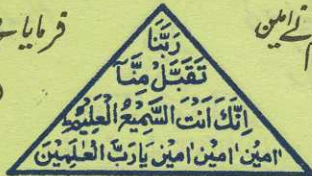 فرمایا
نے امین
رَبَّنَا
تَقَبَّلْ مِنَّآ
اِنَّكَ اَنْتَ السَّمِيْعُ الْعَلِيْمُ
امِيْن امِيْن امِيْن يَارَبَّ الْعٰلَمِيْنَ